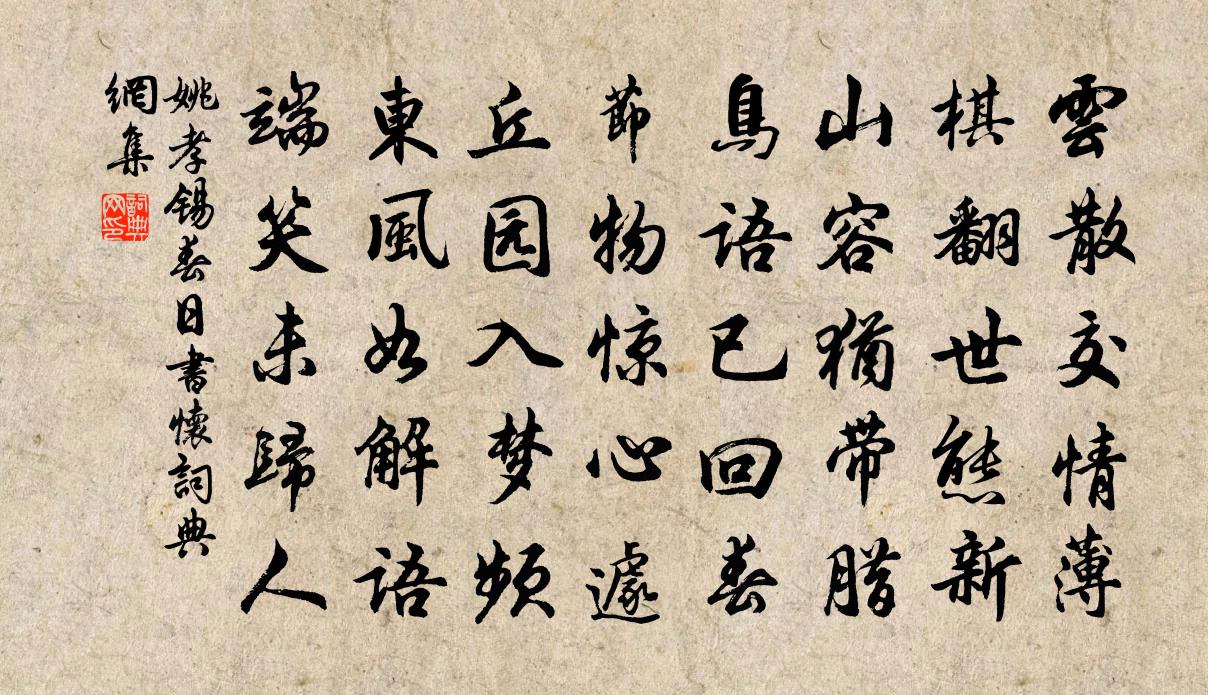 雲散交情薄
棋翻世態新
山容猶带腊
鳥語已回春
節物惊心遽
丘园入梦频
東風如解語
端笑未歸人
姚孝锡春日書懷詞典
網集
詞典
网印